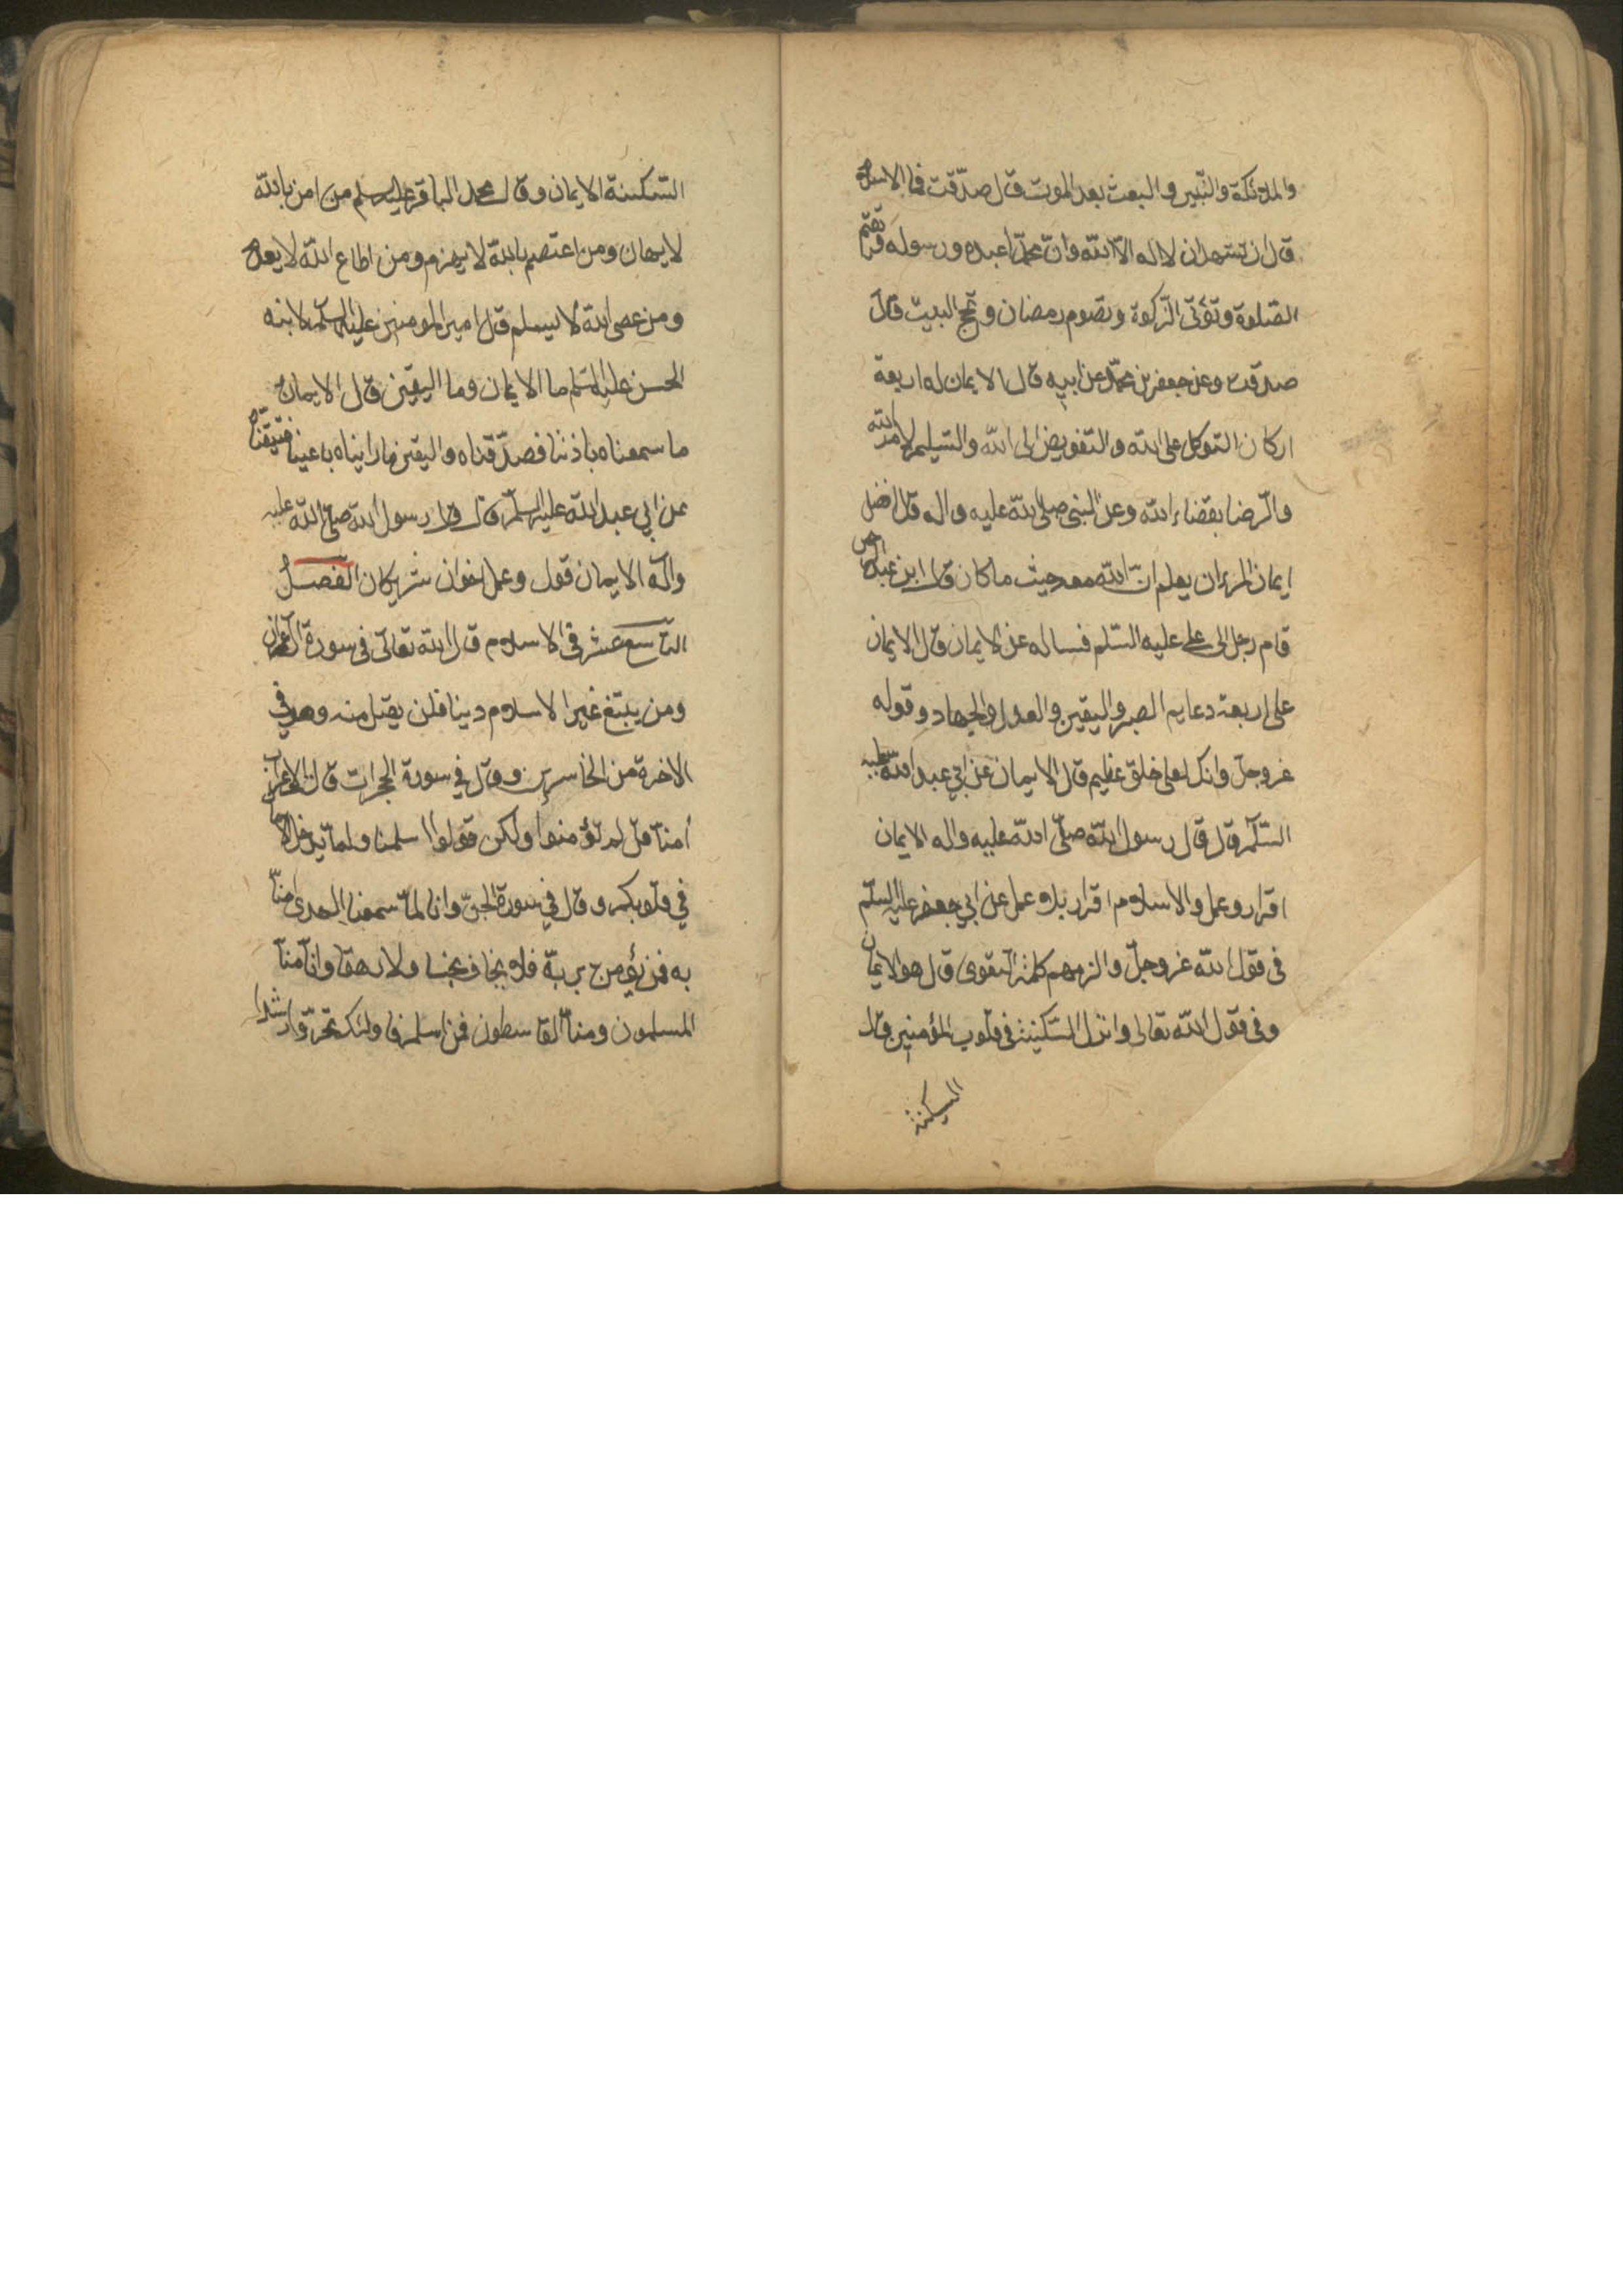 والملائكة والنبيين والبعث بعد الموت قال صدّقت فما الاسلام
قال ان تشهد ان لا اله الّا الله وانّ محمّدا عبده ورسوله وتقيم
الصّلوة وتؤتى الزّكوة وتصوم رمضان وتحجّ البيت قال
صدقت وعن جعفر بن محمّد عن ابيه قال الايمان له اربعة
اركان التوكل على الله والتفويض الى الله والتسليم لامر الله
والرّضا بقضاء الله وعن النبى صلى الله عليه واله قال افضل
ايمان المرء ان يعلم انّ الله معه حيث ما كان قال ابن عبد الرحمن
قام رجل الى على عليه السّلم فساله عن الايمان قال الايمان
على اربعة دعايم الصبر واليقين والعدل والجهاد وقوله
عزوجلّ وانك لعلى خلق عظيم قال الايمان عن ابي عبد الله عليه
السّلم قال قال رسول الله صلّى الله عليه واله الايمان
اقرار وعمل والاسلام اقرار بلا عمل عن ابي جعفر عليه السلم
فى قول الله عزوجلّ والزمهم كلمة التقوى قال هو الايمان
وفى قول الله تعالى وانزل السّكينة فى قلوب المؤمنين قال
السكينة
السّكينة الايمان وقال محمد الباقر عليه السلم من امن بالله
لا يهان ومن اعتصم بالله لا يهزم ومن اطاع الله لا يعدم
ومن عصى الله لا يسلم قال امير المومنين عليه السلم لابنه
الحسن عليه السّلم ما الايمان وما اليقين قال الايمان
ما سمعناه باذننا فصدّقناه واليقين ما رايناه باعيننا فتيقنّاه
عن ابي عبد الله عليه السلم قال قال رسول الله صلى الله عليه
واله الايمان قول وعمل اخوان شريكان الفصل
التاسع عشر فى الاسلام قال الله تعالى فى سورة ال عمران
ومن يبتغ غير الاسلام دينا فلن يقبل منه وهو في
الاخرة من الخاسرين وقال في سورة الحجرات قالت الاعراب
امنّا قل لم تؤمنوا ولكن قولوا اسلمنا ولمّا يدخل الايمان
في قلوبكم وقال في سورة الجنّ وانا لمّا سمعنا الهدى امنّا
به فمن يؤمن بربّه فلا يخاف بخسا ولا رهقا وانّا منّا
المسلمون ومنّا القاسطون فمن اسلم فاولئك تحرّوا رشدا